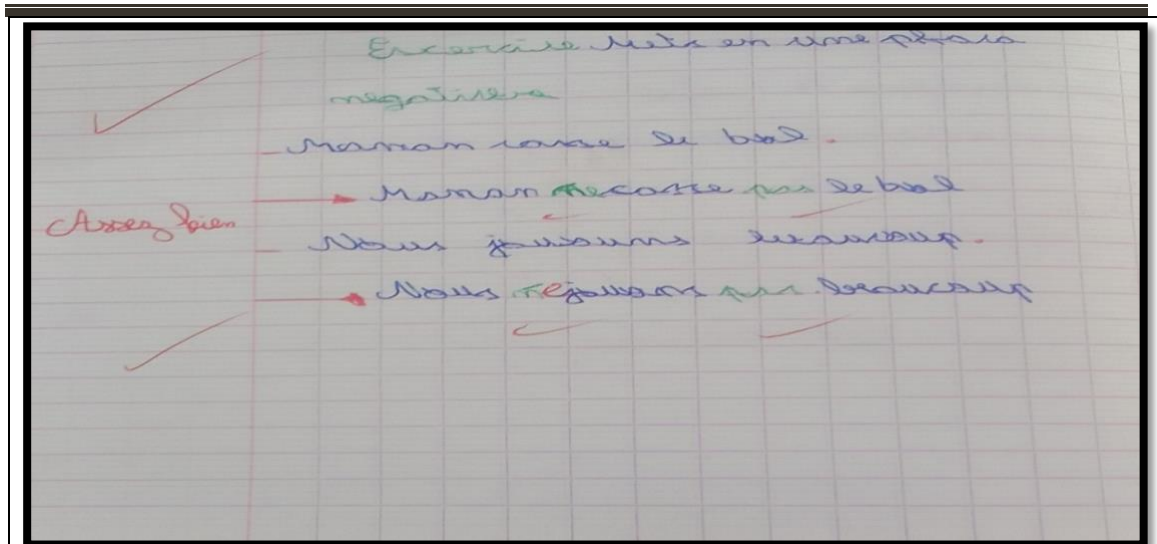 Excercice Mets en une phras
negativera
Maman casse le bol.
Maman ne casse pas le bol
Assez bien
Nous jousouns beaucoup.
Nous ne jousons pas beaucoup